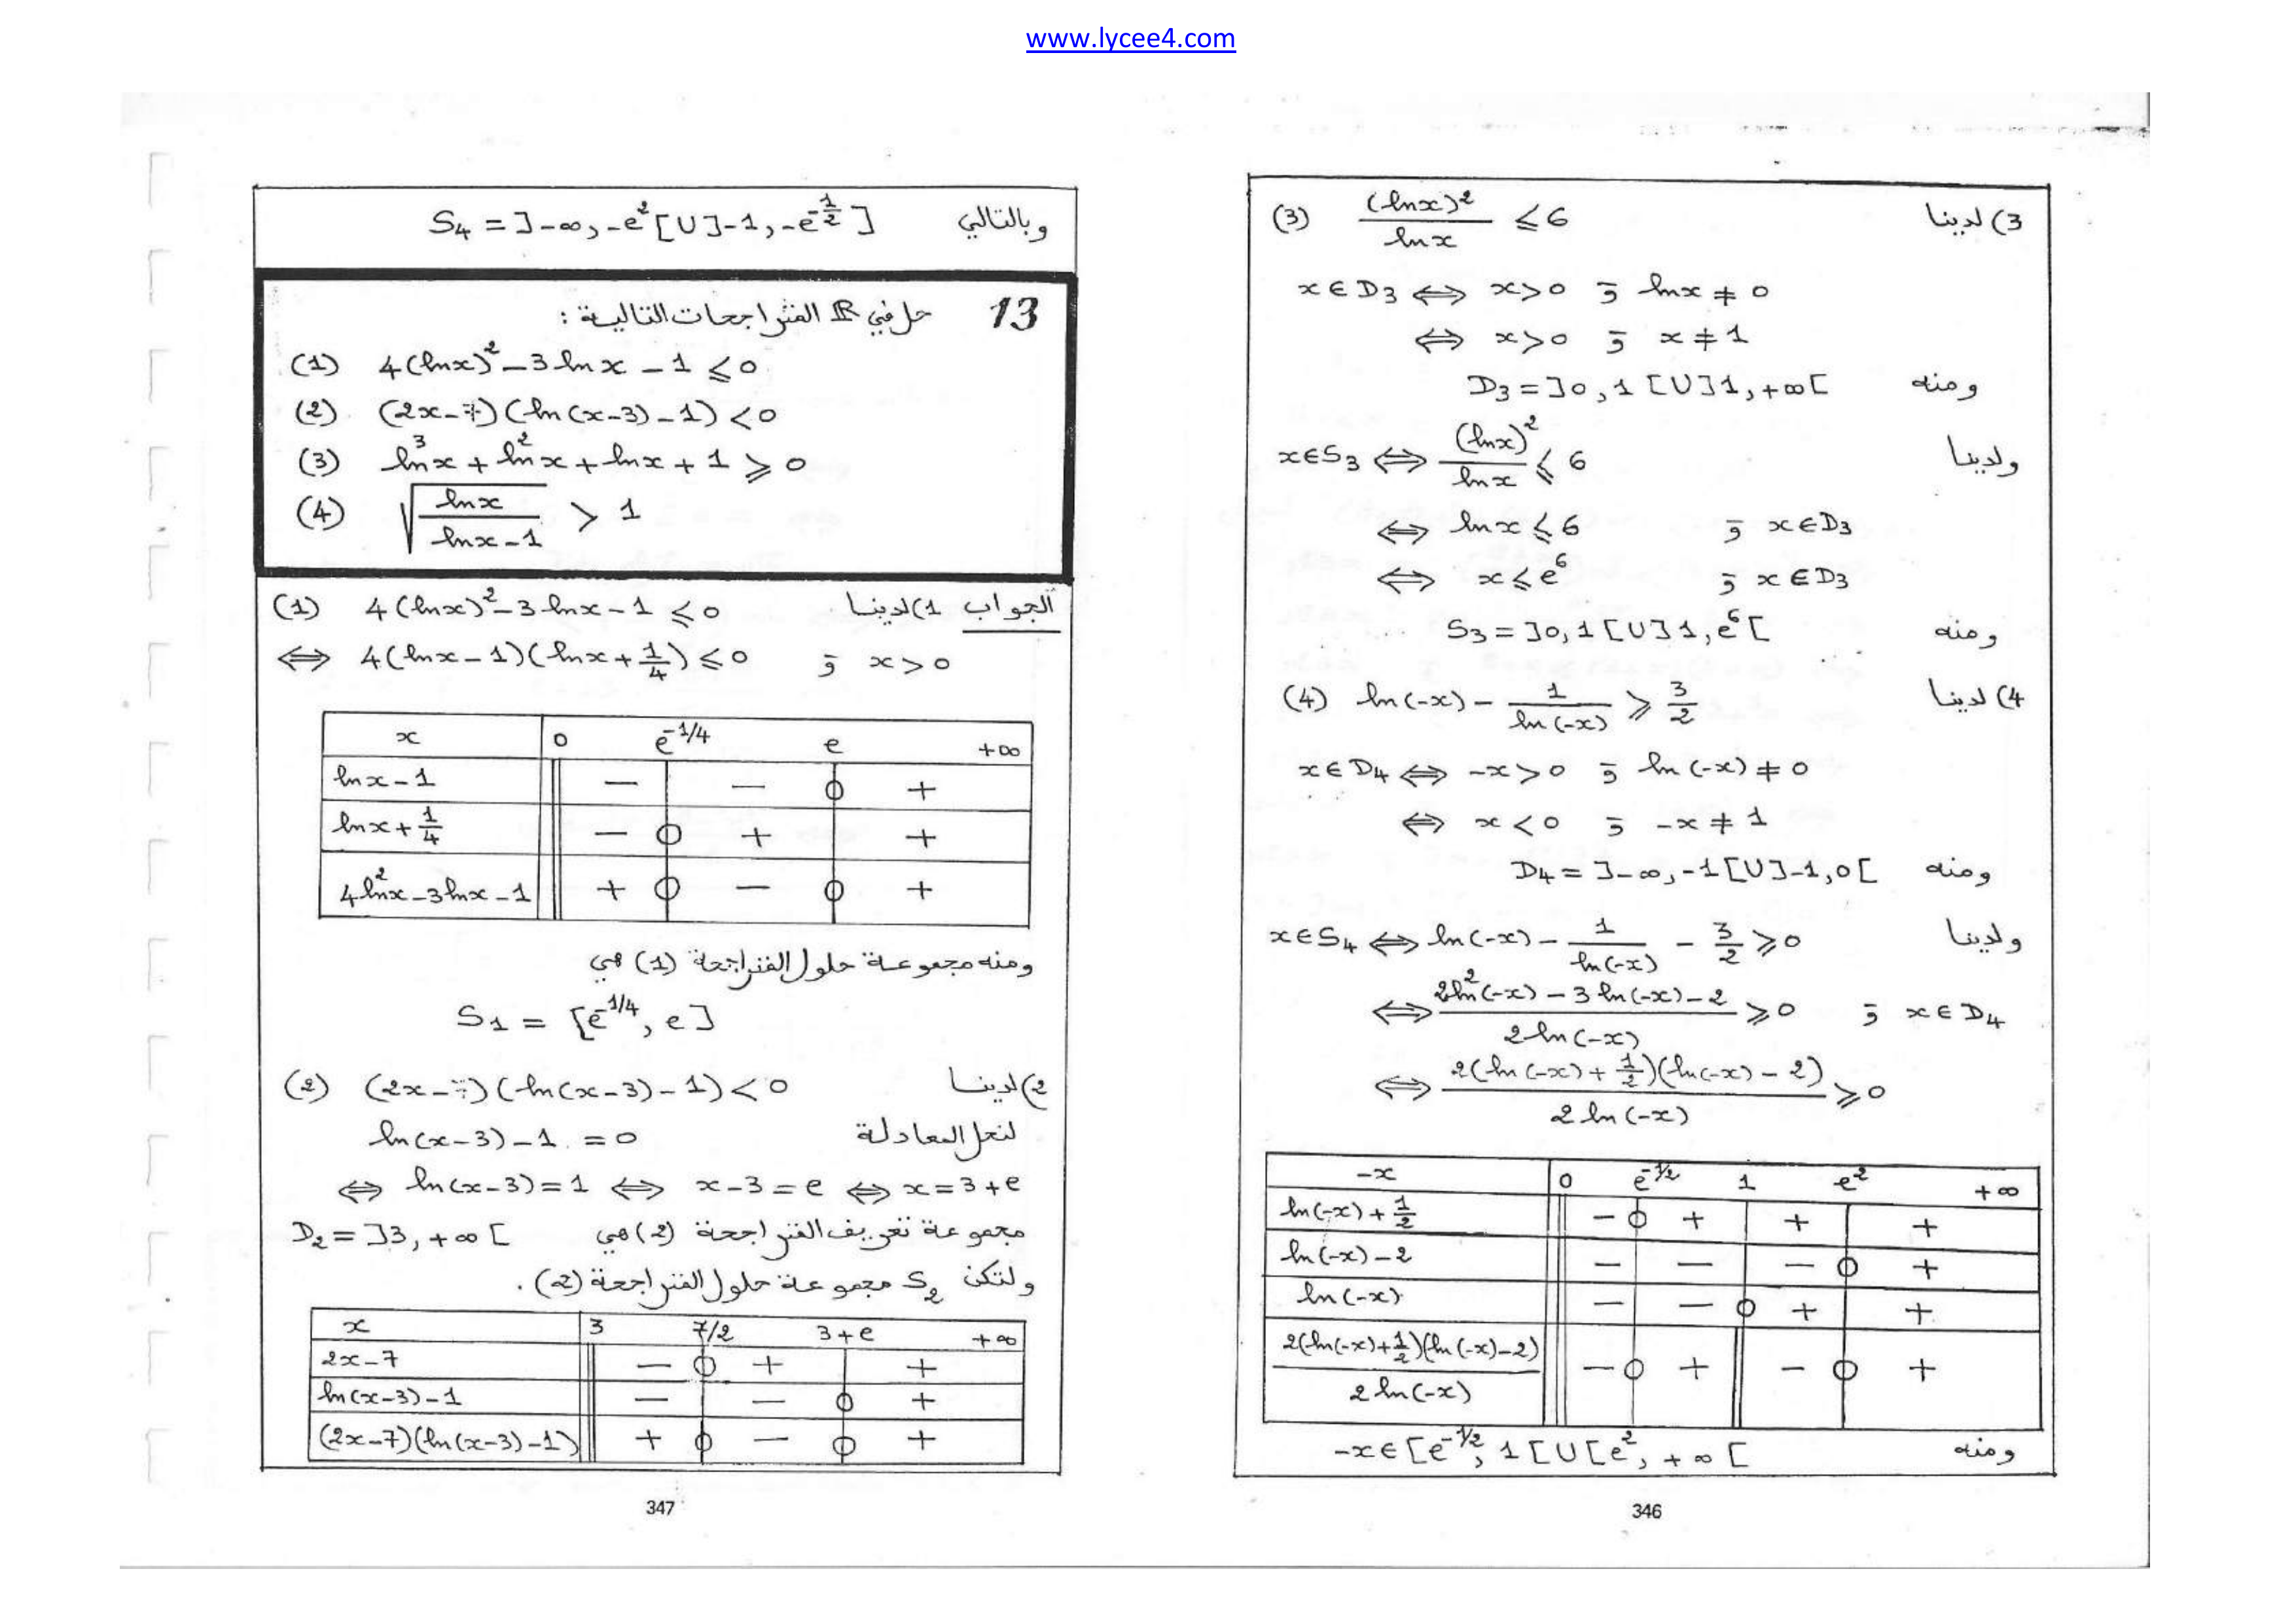 www.lycee4.com
3) لدينا (3) (lnx)²/lnx ⩽ 6
x ∈ D₃ ⟺ x > 0 و lnx ≠ 0
⟺ x > 0 و x ≠ 1
ومنه D₃ = ]0, 1[ U ]1, +∞[
ولدينا x ∈ S₃ ⟺ (lnx)²/lnx ⩽ 6
⟺ lnx ⩽ 6 و x ∈ D₃
⟺ x ⩽ e⁶ و x ∈ D₃
ومنه S₃ = ]0, 1[ U ]1, e⁶[
4) لدينا (4) ln(-x) - 1/ln(-x) ⩾ 3/2
x ∈ D₄ ⟺ -x > 0 و ln(-x) ≠ 0
⟺ x < 0 و -x ≠ 1
ومنه D₄ = ]-∞, -1[ U ]-1, 0[
ولدينا x ∈ S₄ ⟺ ln(-x) - 1/ln(-x) - 3/2 ⩾ 0
⟺ (2ln²(-x) - 3ln(-x) - 2)/(2ln(-x)) ⩾ 0 و x ∈ D₄
⟺ 2(ln(-x) + 1/2)(ln(-x) - 2)/(2ln(-x)) ⩾ 0
-x 0 e^-1/2 1 e² +∞
ln(-x) + 1/2 - 0 + + +
ln(-x) - 2 - - - 0 +
ln(-x) - - 0 + +
2(ln(-x)+1/2)(ln(-x)-2)/(2ln(-x)) - 0 + - 0 +
ومنه -x ∈ [e^-1/2, 1[ U [e², +∞[
346
وبالتالي S₄ = ]-∞, -e²[ U ]-1, -e^-1/2]
13 حل في ℝ المتراجحات التالية :
(1) 4(lnx)² - 3lnx - 1 ⩽ 0
(2) (2x-7)(ln(x-3)-1) < 0
(3) ln³x + ln²x + lnx + 1 ⩾ 0
(4) √(lnx/(lnx-1)) > 1
الجواب 1) لدينا (1) 4(lnx)² - 3lnx - 1 ⩽ 0
⟺ 4(lnx - 1)(lnx + 1/4) ⩽ 0 و x > 0
x 0 e^-1/4 e +∞
lnx - 1 - - 0 +
lnx + 1/4 - 0 + +
4ln²x - 3lnx - 1 + 0 - 0 +
ومنه مجموعة حلول المتراجحة (1) هي
S₁ = [e^-1/4, e]
2) لدينا (2) (2x-7)(ln(x-3)-1) < 0
لنحل المعادلة ln(x-3) - 1 = 0
⟺ ln(x-3) = 1 ⟺ x-3 = e ⟺ x = 3+e
مجموعة تعريف المتراجحة (2) هي D₂ = ]3, +∞[
ولتكن S₂ مجموعة حلول المتراجحة (2).
x 3 7/2 3+e +∞
2x-7 - 0 + +
ln(x-3)-1 - - 0 +
(2x-7)(ln(x-3)-1) + 0 - 0 +
347